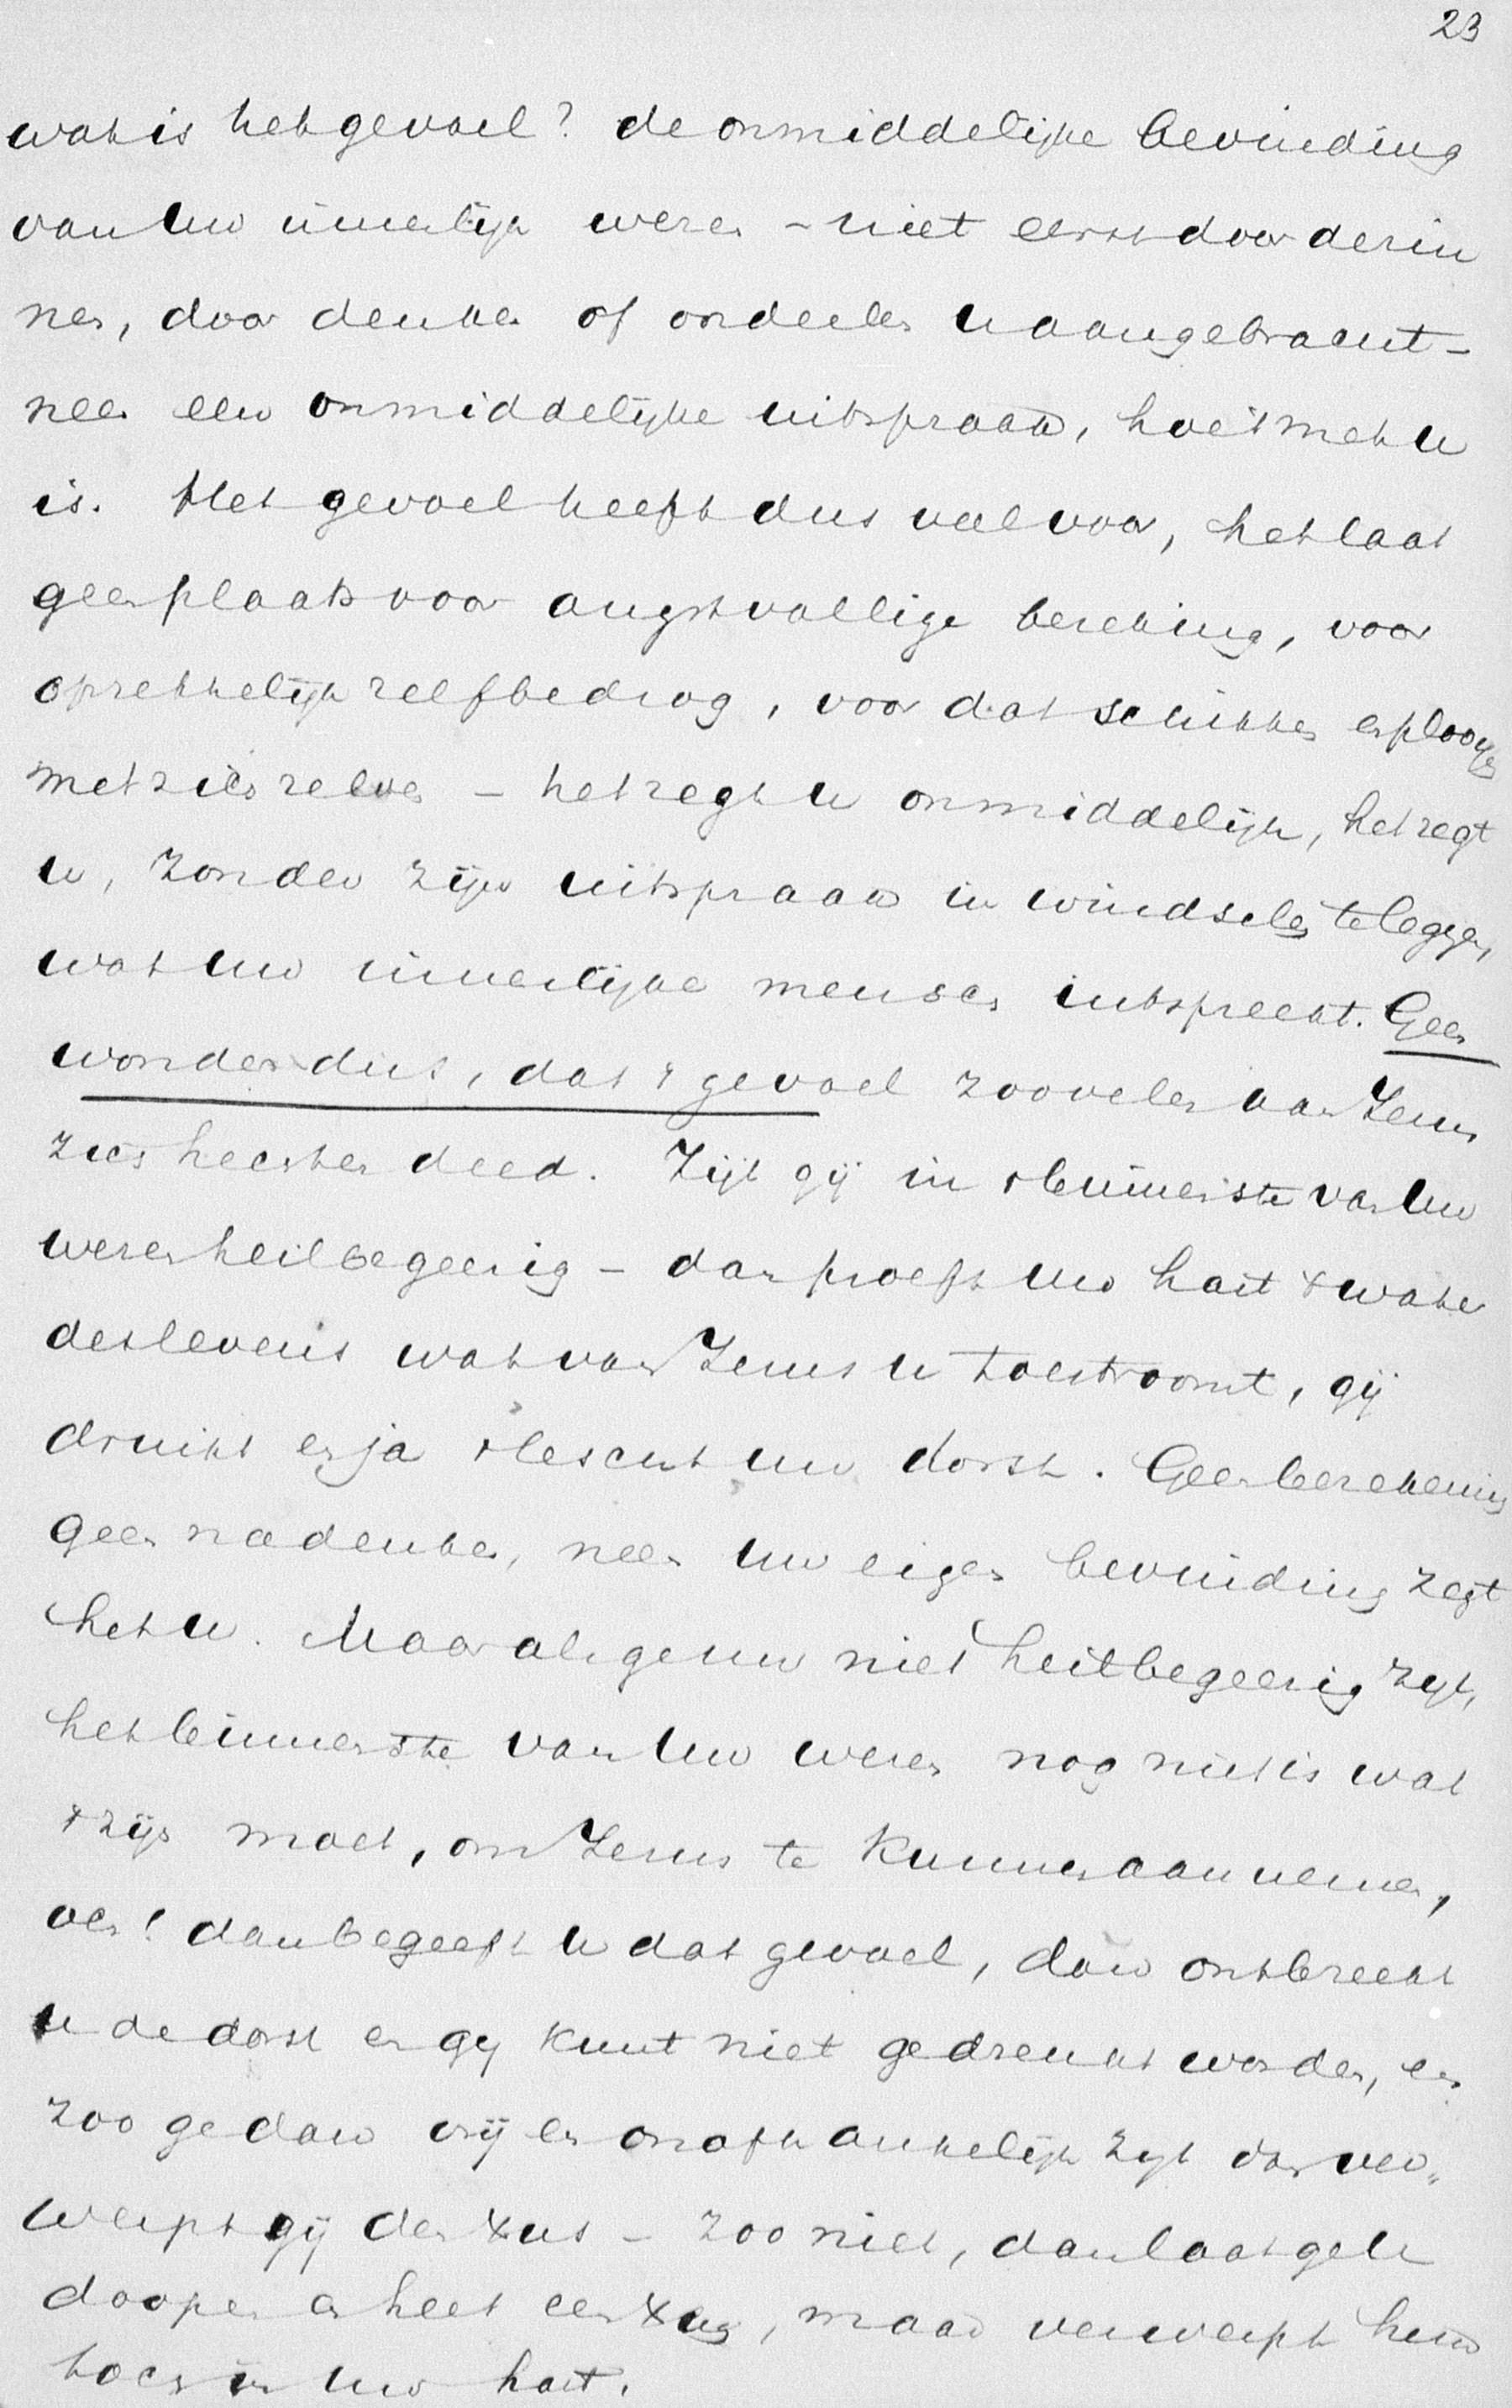 23
wat is het gevoel? de onmiddelijke bevinding
van Uw innerlijk wezen – niet eerst door de zin
nen, door denken of ondeelen U aangebracht –
neen een onmiddelijke uitspraak, hoe 't met U
is. Het gevoel heeft dus veel voor, het laat
geen plaats voor angstvallige bereking, voor
opzettelijk zelfbedrog, voor dat schikken en plooyen
met zich zelven – het zegt U onmiddelijk, het zegt
U, zonder zijn uitspraak in windselen te leggen,
wat Uw innerlijke mensch uitspreekt. Geen
wonder dus, dat 't gevoel zoovelen aan Jezus
zich hechten deed. Zijt gij in 't binnenste van Uw
wezen heilbegeerig – dan proeft Uw hart 't water
des levens wat van Jezus U toestroomt, gij
drinkt en ja 't lescht Uw dorst. Geen berekening
geen nadenken, neen Uw eigen bevinding zegt
het U. Maar als ge nu niet heilbegeerig zijt,
het binnenste van Uw wezen nog niet is wat
't zijn moet, om Jezus te kunnen aannemen,
och! dan begeeft U dat gevoel, dan ontbreekt
U de dorst en gij kunt niet gedrenkt worden, en
zoo ge dan vrij en onafhankelijk zijt dan ver„
werpt gij den Xtus – zoo niet, dan laat ge U
doopen en heet een Xten, maar verwerpt hem
toch in Uw hart.